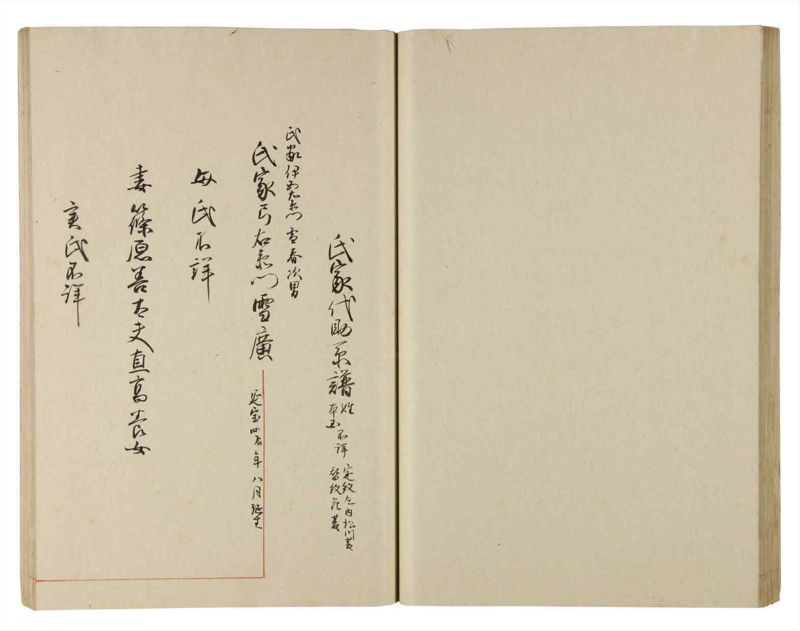 氏家代助系譜 姓本国不詳 定紋丸内松川菱 替紋花菱
氏家伊右衛門 春次男
氏家 右衛門雪廣 延宝四 年八月
母氏不詳
妻篠原善右夫直高養女
実氏不詳